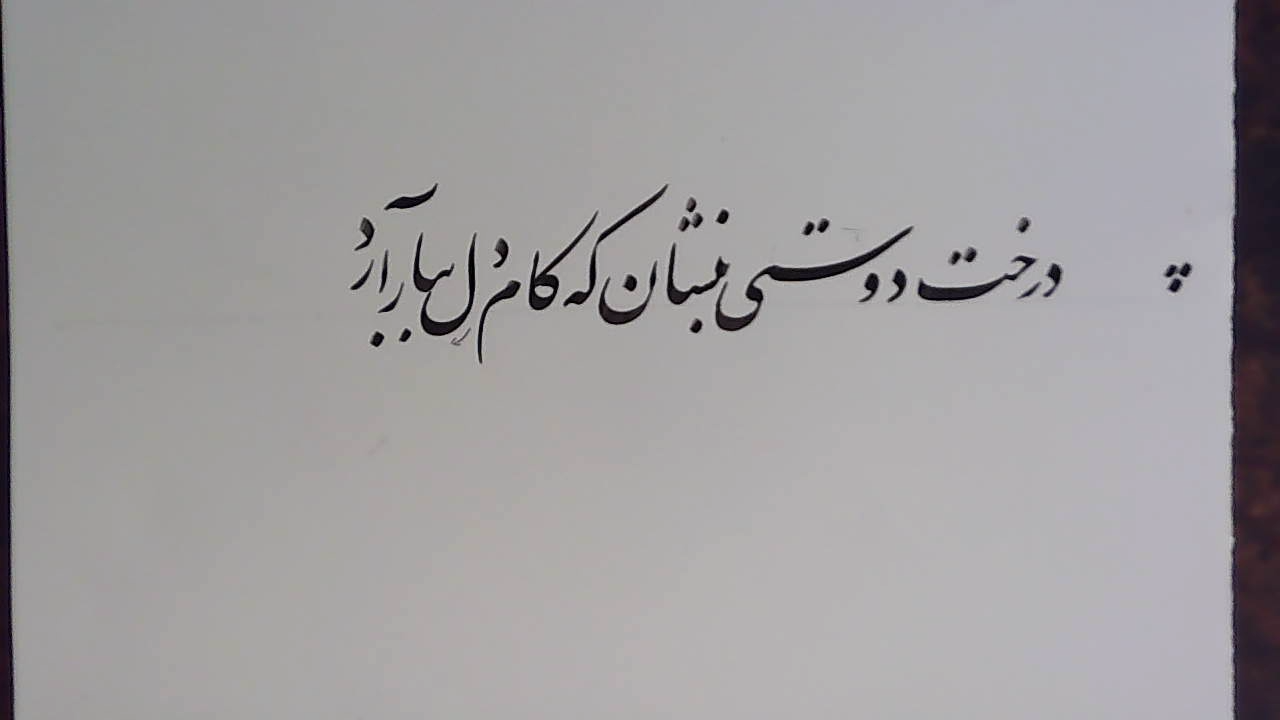 درخت دوستی بنشان که کام دل ببار آرد